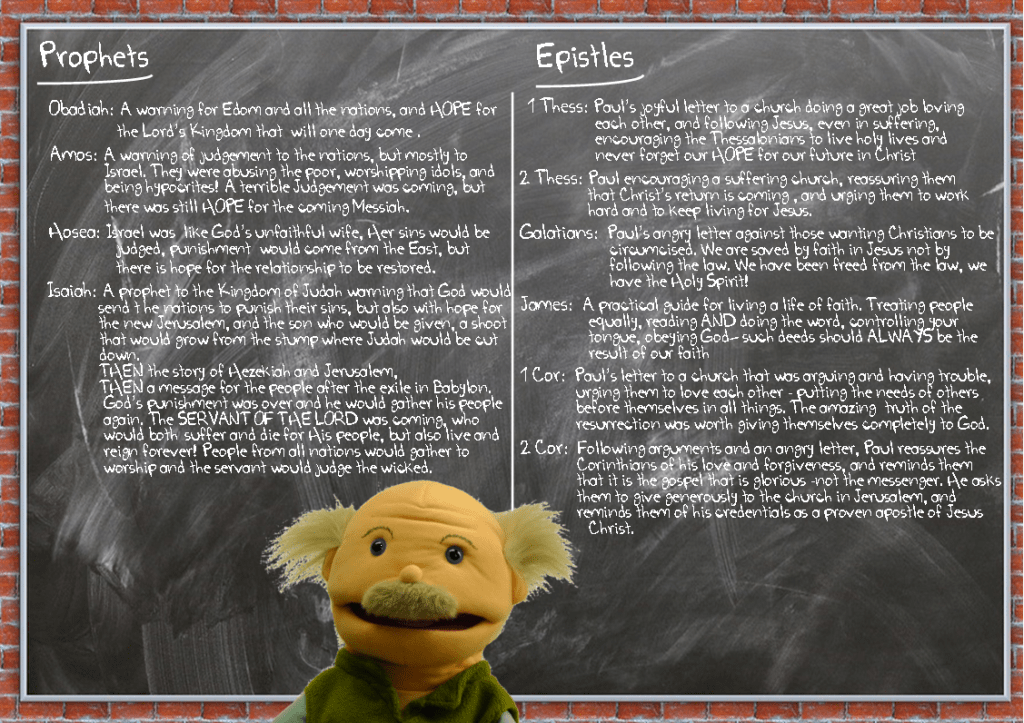 Prophets
Obadiah: A warning for Edom and all the nations, and HOPE for
the Lord's Kingdom that will one day come .
Amos: A warning of judgement to the nations, but mostly to
Israel. They were abusing the poor, worshipping idols, and
being hypocrites! A terrible Judgement was coming, but
there was still HOPE for the coming Messiah.
Hosea: Israel was like God's unfaithful wife, Her sins would be
judged, punishment would come from the East, but
there is hope for the relationship to be restored.
Isaiah: A prophet to the Kingdom of Judah warning that God would
send t he nations to punish their sins, but also with hope for
the new Jerusalem, and the son who would be given, a shoot
that would grow from the stump where Judah would be cut
down.
THEN the story of Hezekiah and Jerusalem,
THEN a message for the people after the exile in Babylon.
God's punishment was over and he would gather his people
again. The SERVANT OF THE LORD was coming, who
would both suffer and die for His people, but also live and
reign forever! People from all nations would gather to
worship and the servant would judge the wicked.
Epistles
1 Thess: Paul's joyful letter to a church doing a great job loving
each other, and following Jesus, even in suffering,
encouraging the Thessalonians to live holy lives and
never forget our HOPE for our future in Christ
2 Thess: Paul encouraging a suffering church, reassuring them
that Christ's return is coming , and urging them to work
hard and to keep living for Jesus.
Galatians: Paul's angry letter against those wanting Christians to be
circumcised. We are saved by faith in Jesus not by
following the law. We have been freed from the law, we
have the Holy Spirit!
James: A practical guide for living a life of faith. Treating people
equally, reading AND doing the word, controlling your
tongue, obeying God- such deeds should ALWAYS be the
result of our faith
1 Cor: Paul's letter to a church that was arguing and having trouble,
urging them to love each other - putting the needs of others
before themselves in all things. The amazing truth of the
resurrection was worth giving themselves completely to God.
2 Cor: Following arguments and an angry letter, Paul reassures the
Corinthians of his love and forgiveness, and reminds them
that it is the gospel that is glorious -not the messenger. He asks
them to give generously to the church in Jerusalem, and
reminds them of his credentials as a proven apostle of Jesus
Christ.